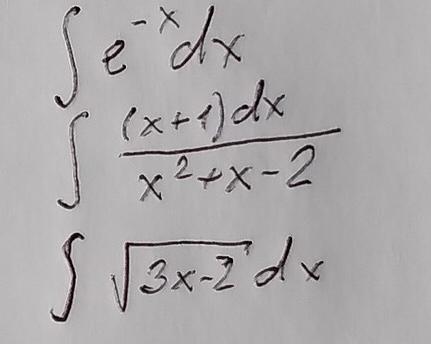 ∫ e^{-x} dx
∫ \frac{(x+1)dx}{x^2+x-2}
∫ \sqrt{3x-2} dx